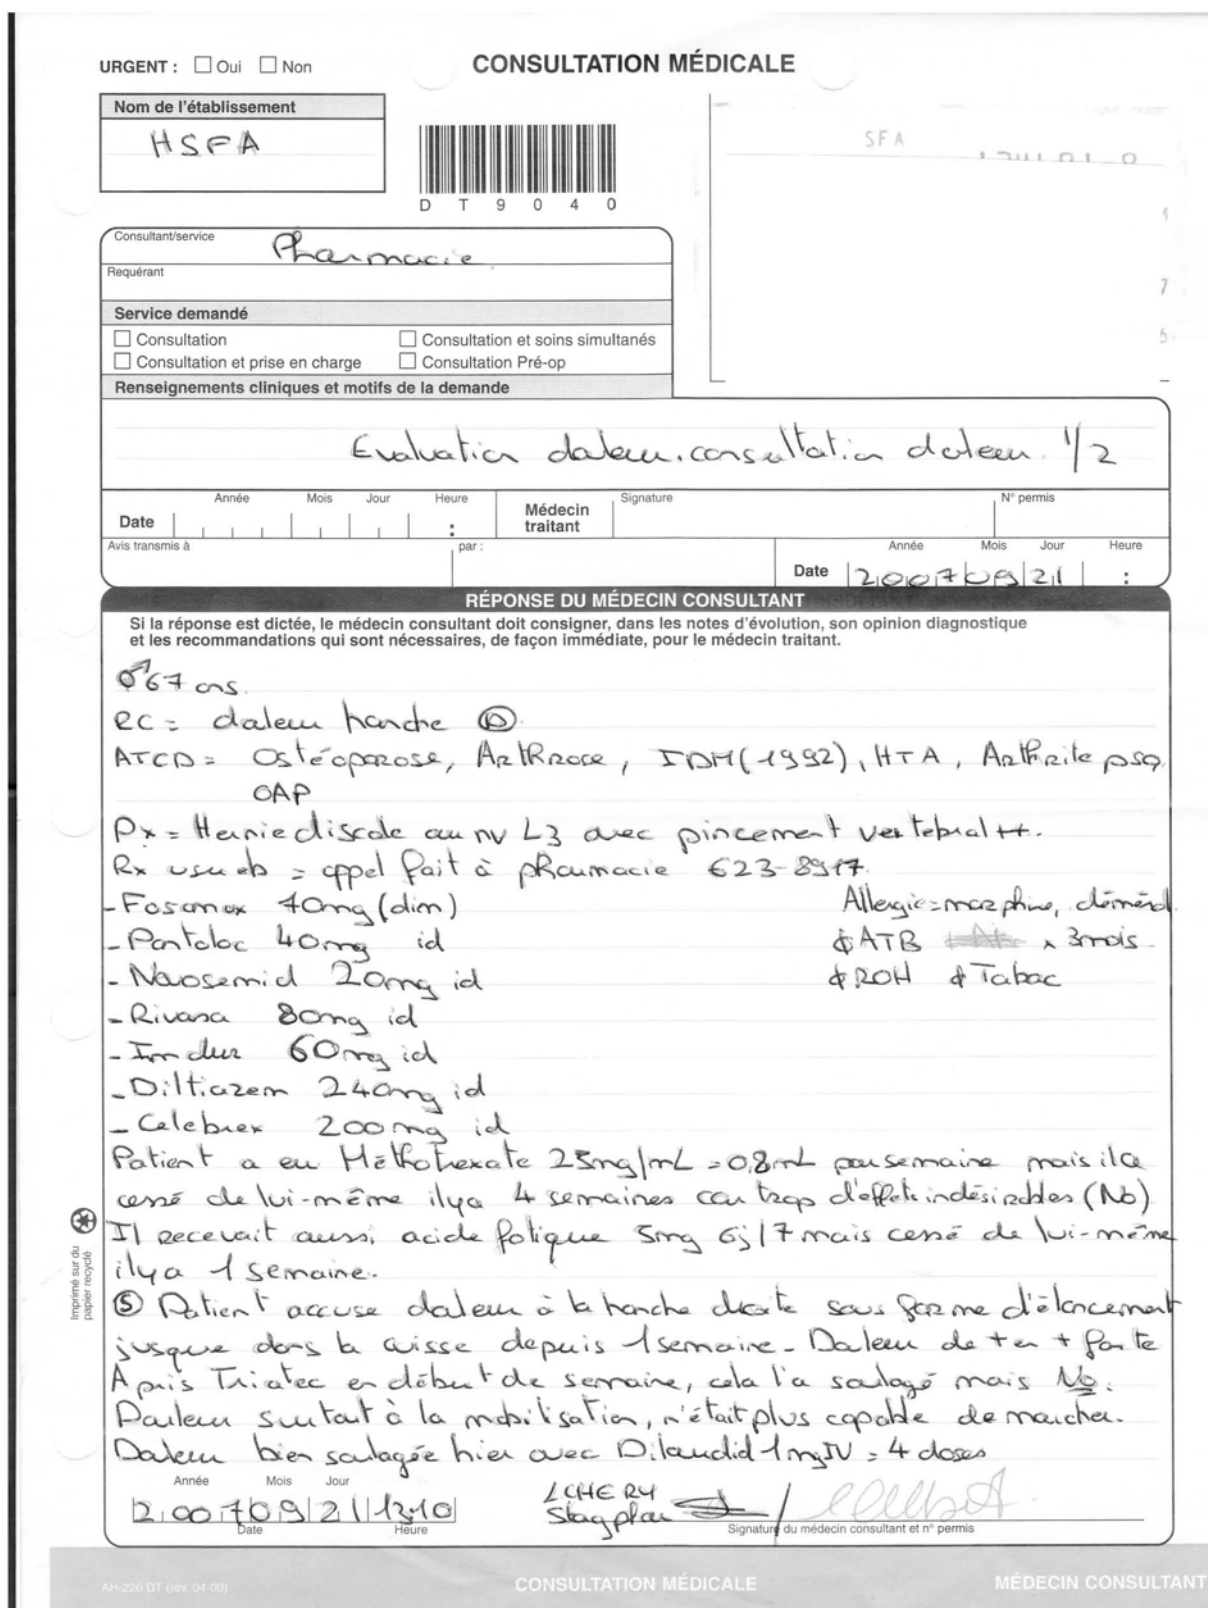 URGENT : Oui Non
CONSULTATION MÉDICALE
Nom de l'établissement
HSFA
DT9040
SFA
Consultant/service
Pharmacie
Requérant
Service demandé
Consultation Consultation et soins simultanés
Consultation et prise en charge Consultation Pré-op
Renseignements cliniques et motifs de la demande
Evaluation douleur. consultation douleur. 1/2
Année Mois Jour Heure Signature N° permis
Date : Médecin traitant
Avis transmis à par : Année Mois Jour Heure
Date 2007 09 21 :
RÉPONSE DU MÉDECIN CONSULTANT
Si la réponse est dictée, le médecin consultant doit consigner, dans les notes d'évolution, son opinion diagnostique
et les recommandations qui sont nécessaires, de façon immédiate, pour le médecin traitant.
♂ 67 ans.
RC = douleur hanche Ⓓ
ATCD = Ostéoporose, Arthrose, IDM (1992), HTA, Arthrite pso,
OAP
Dx = Hernie discale au nv L3 avec pincement vertebral ++.
Rx usuels = appel fait à pharmacie 623-8917
- Fosamax 70mg (dim) Allergie = morphine, démérol
- Pantoloc 40mg id ∅ ATB x 3mois
- Novosemid 20mg id ∅ ROH ∅ Tabac
- Rivasa 80mg id
- Imdur 60mg id
- Diltiazem 240mg id
- Celebrex 200mg id
Patient a eu Méthotrexate 25mg/mL = 0,8mL par semaine mais il a
cessé de lui-même il y a 4 semaines car trop d'effets indésirables (No)
Il recevait aussi acide folique 5mg 6j/7 mais cessé de lui-même
il y a 1 semaine.
Ⓢ Patient accuse douleur à la hanche droite sous forme d'élancement
jusque dans la cuisse depuis 1 semaine - Douleur de + en + forte
A pris Triatec en début de semaine, cela l'a soulagé mais No.
Douleur surtout à la mobilisation, n'était plus capable de marcher.
Douleur bien soulagée hier avec Dilaudid 1mg IV = 4 doses
Année Mois Jour
2007 09 21 13:10
Date Heure
LCHERY
Stag phar
Signature du médecin consultant et n° permis
Imprimé sur du
papier recyclé
AH-226 DT (rév. 04-09) CONSULTATION MÉDICALE MÉDECIN CONSULTANT